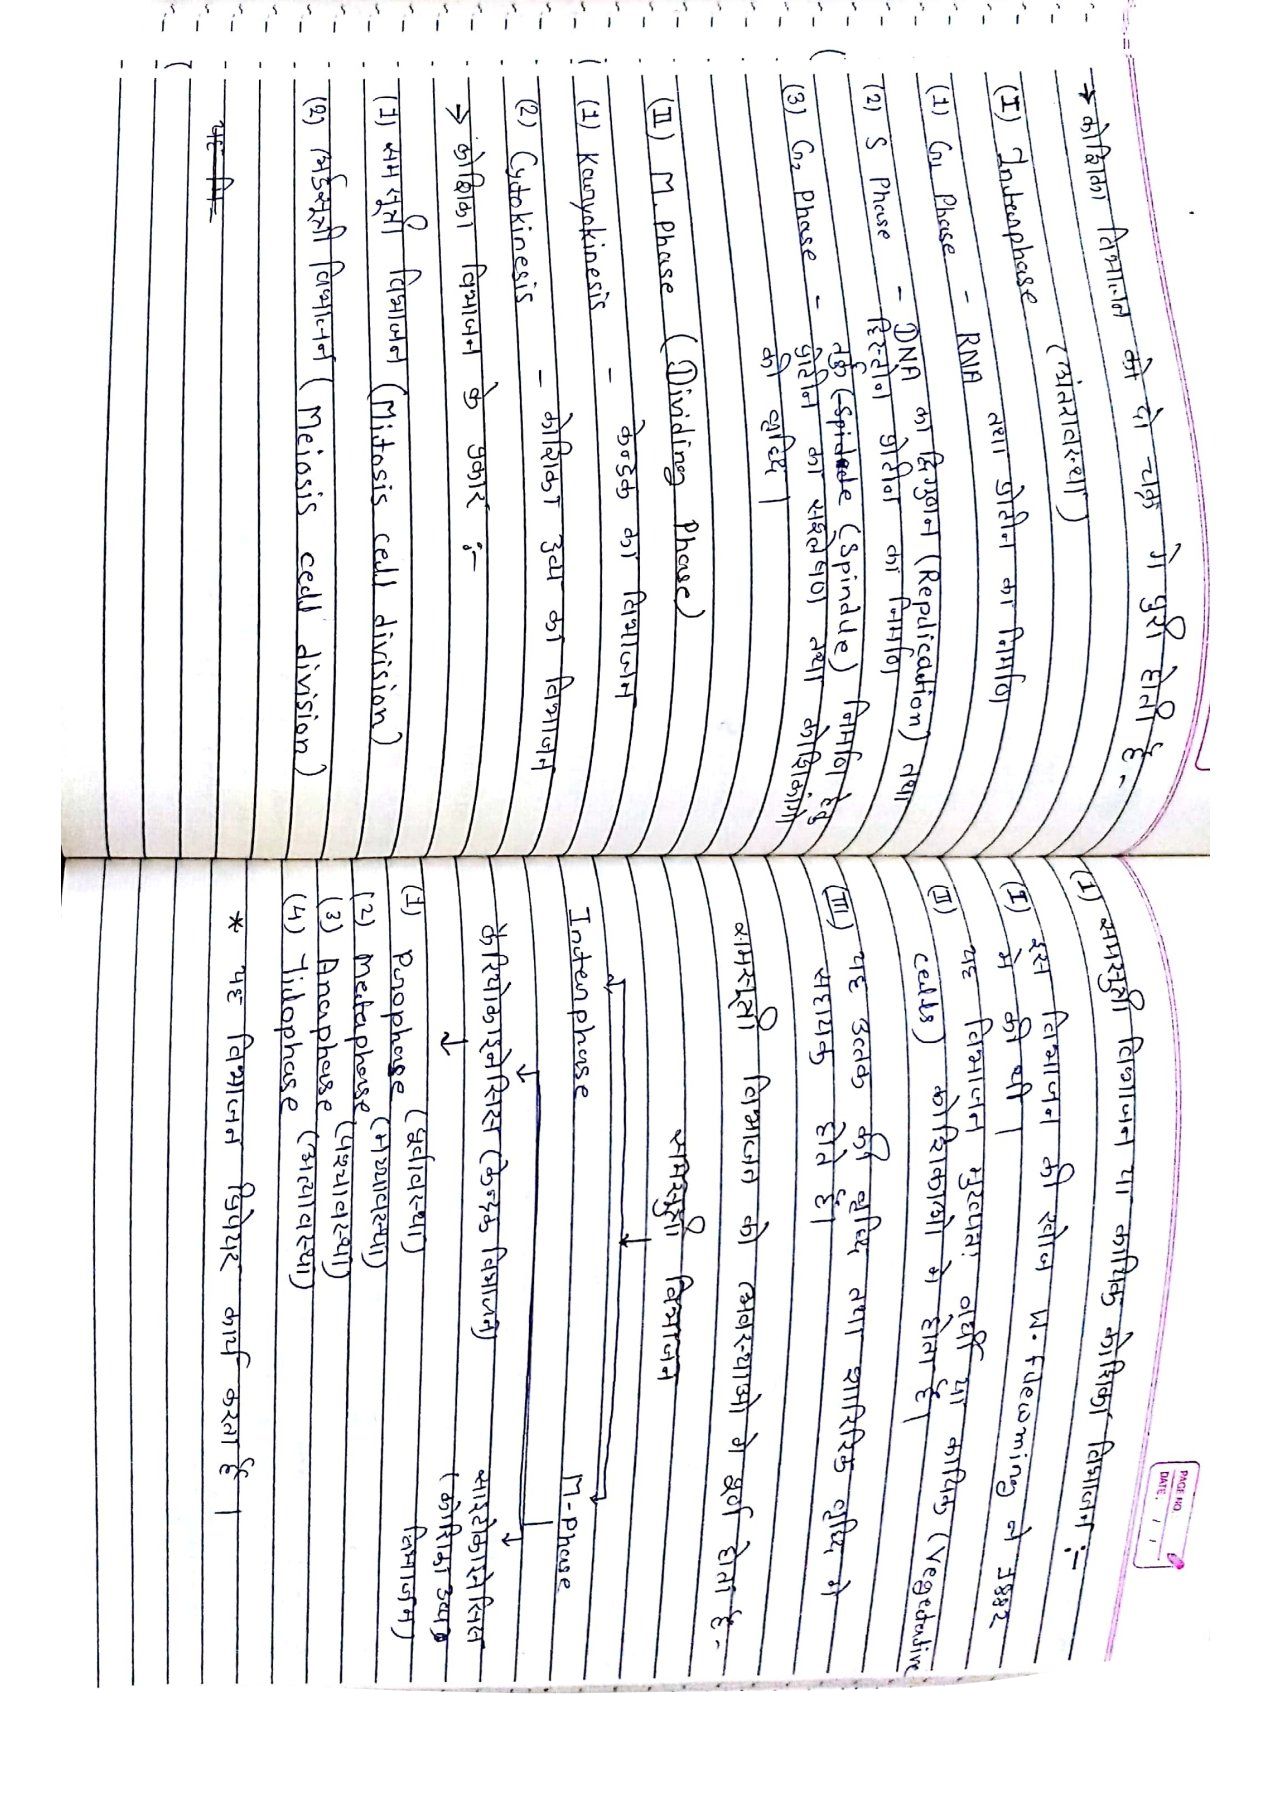 → कोशिका विभाजन को दो चक्र मे पुरी होती है -
(I) Interphase (अंतरावस्था)
(1) G1 Phase - RNA तथा प्रोटीन का निर्माण
(2) S Phase - DNA का द्विगुणन (Replication) तथा
हिस्टोन प्रोटीन का निर्माण
(3) G2 Phase - तर्कु (Spindle (Spindule) निर्माण हेतु
प्रोटीन का संश्लेषण तथा कोशिकांगो
की वृद्धि |
(II) M. Phase (Dividing Phase)
(1) Karyokinesis - केन्द्रक का विभाजन
(2) Cytokinesis - कोशिका द्रव्य का विभाजन
→ कोशिका विभाजन के प्रकार :-
(1) समसूत्री विभाजन (Mitosis cell division)
(2) अर्द्धसूत्री विभाजन (Meiosis cell division)
PAGE NO.
DATE: / /
(1) समसूत्री विभाजन या कायिक कोशिका विभाजन :-
(I) इस विभाजन की खोज W. Flewming ने 1882
मे की थी |
(II) यह विभाजन मुख्यतः वर्धी या कायिक (Vegetative
cells) कोशिकाओ मे होता है |
(III) यह उत्तक की वृद्धि तथा शारिरिक वृद्धि मे
सहायक होते है |
समसूत्री विभाजन को अवस्थाओ मे पूर्ण होता है -
समसूत्री विभाजन
Interphase M-Phase
केरियोकाइनेसिस (केन्द्रक विभाजन) साइटोकाइनेसिस
(कोशिका द्रव्य
विभाजन)
(1) Prophase (पूर्वावस्था)
(2) Metaphase (मध्यावस्था)
(3) Anaphase (पश्चावस्था)
(4) Tilophase (अंत्यावस्था)
* यह विभाजन रिपेयर कार्य करता है |